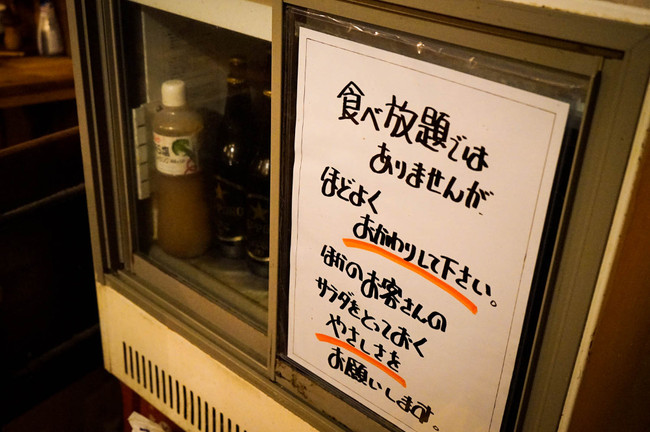 食べ放題では
ありませんが
ほどよく
おかわりして下さい。
ほかのお客さんの
サラダをとっておく
やさしさを
お願いします。